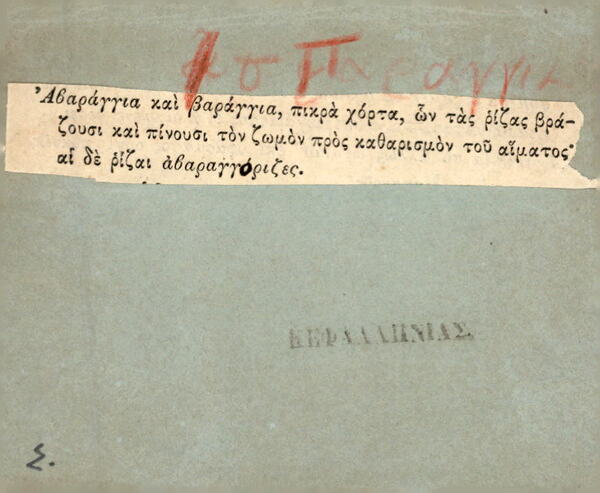 Ἀβαράγγια καὶ βαράγγια, πικρὰ χόρτα, ὧν τὰς ῥίζας βρά-
ζουσι καὶ πίνουσι τὸν ζωμὸν πρὸς καθαρισμὸν τοῦ αἵματος·
αἱ δὲ ῥίζαι ἀβαραγγόριζες.
ΚΕΦΑΛΛΗΝΙΑΣ
Σ.